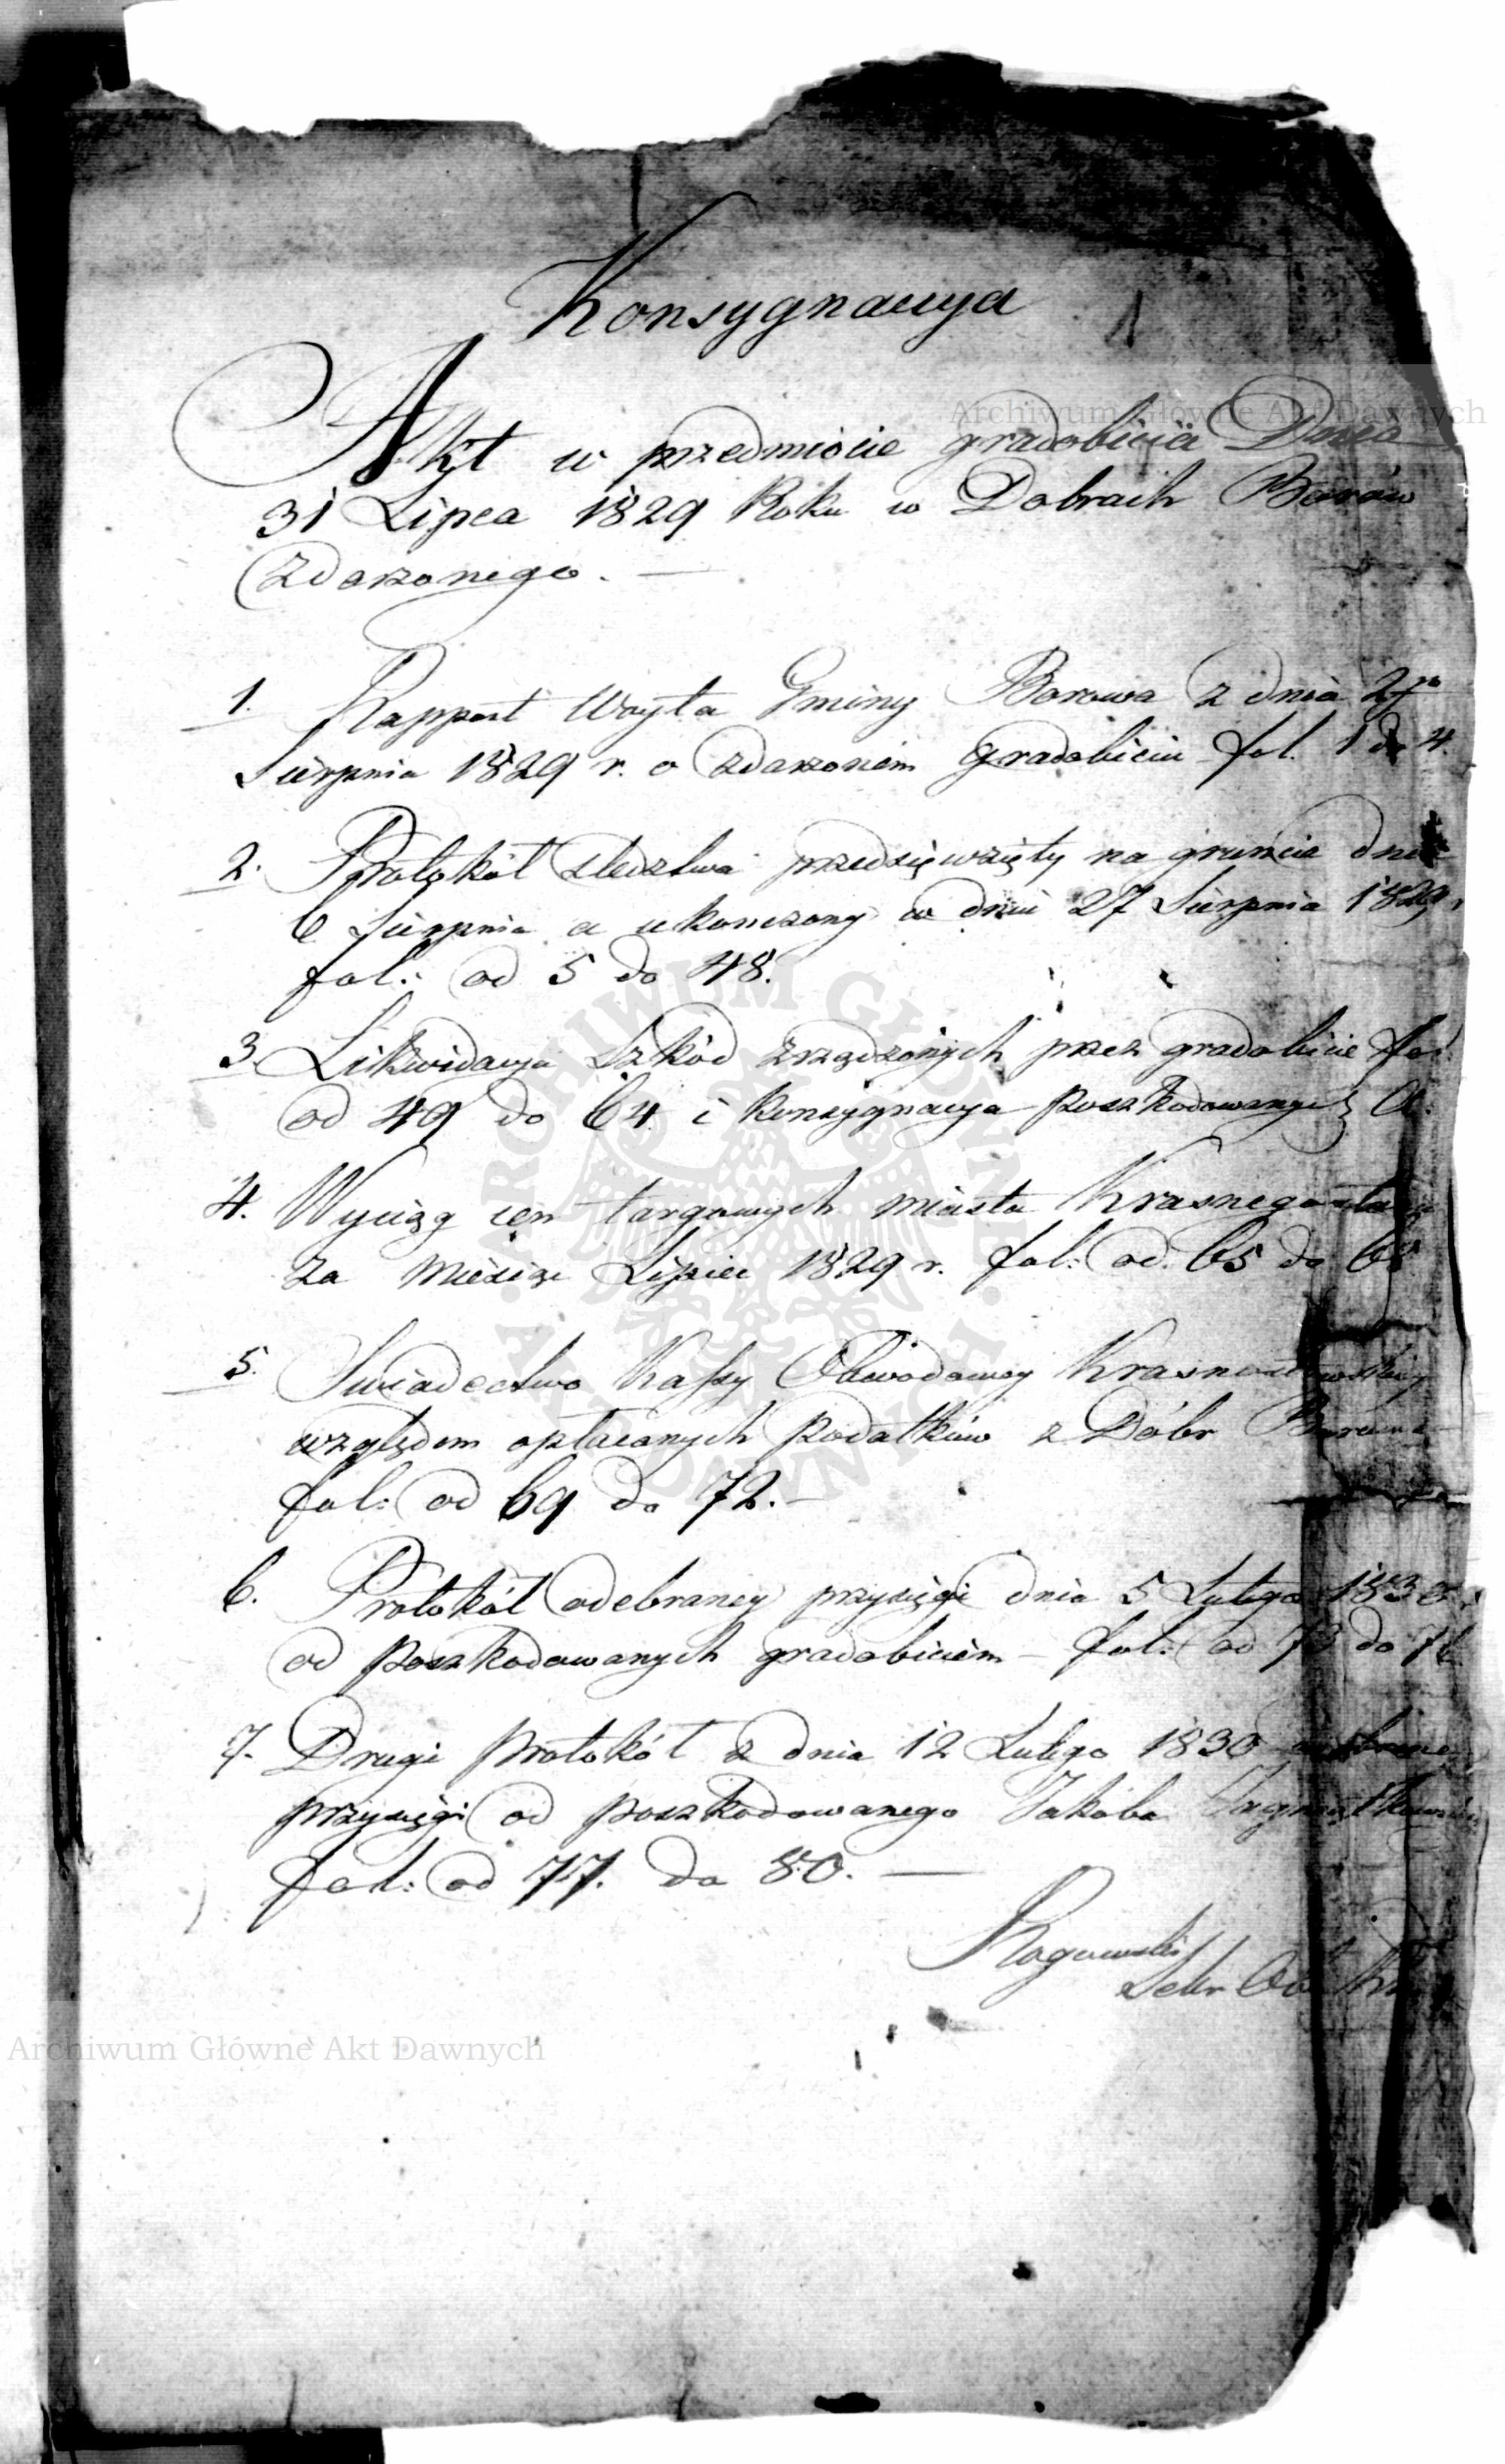 Konsygnacya
1
Akt w przedmiocie gradobicia Dnia
31 Lipca 1829 Roku w Dobrach Borów
zdarzonego. —
1. Rapport Woyta Gminy Borowa z dnia 2go
Sierpnia 1829 r. o zdarzonem gradobiciu fol. 1 do 4.
2. Protokół sledztwa przedsięwzięty na gruncie dnia
6 Sierpnia a ukonczony w dniu 27 Sierpnia 1829 r
fol: od 5 do 48.
3. Likwidacya Szkód zrządzonych przez gradobicie fol.
od 49 do 64. i Konsygnacya poszkodowanych
4. Wyciąg cen targowych miasta Krasnegostawu
za Miesiąc Lipiec 1829 r. fol: od 65 do 68
5. Swiadectwo Kassy Obwodowey Krasnostawskiey
względem opłacanych podatków z Dóbr Borowa
fol: od 69 do 72. —
6. Protokół odebraney przysięgi dnia 5 Lutego 1830 r
od poszkodowanych gradobiciem — fol: od 73 do 76.
7. Drugi protokół z dnia 12 Lutego 1830 odebraney
przysięgi od poszkodowanego Jakóba
fol: od 77. do 80. —
Rogowski
Sekr Ob
Archiwum Główne Akt Dawnych
Archiwum Główne Akt Dawnych
ARCHIWUM GŁÓWNE AKT DAWNYCH